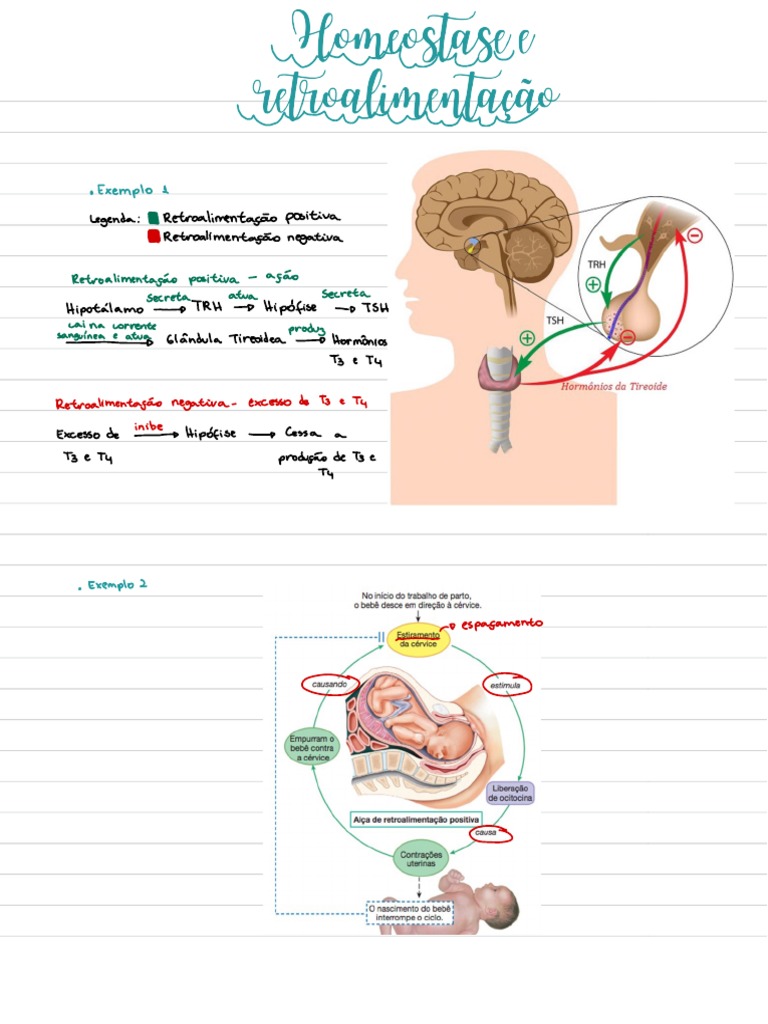 Homeostase e
retroalimentação
• Exemplo 1
Legenda: Retroalimentação positiva
Retroalimentação negativa
Retroalimentação positiva - ação
Hipotálamo secreta TRH atua Hipófise Secreta TSH
cai na corrente
sanguínea e atua Glândula Tireoidea produz Hormônios
T3 e T4
Retroalimentação negativa - excesso de T3 e T4
Excesso de inibe Hipófise Cessa a
T3 e T4 produção de T3 e
T4
TRH
TSH
Hormônios da Tireoide
• Exemplo 2
No início do trabalho de parto,
o bebê desce em direção à cérvice.
Estiramento
da cérvice
espaçamento
causando
estimula
Empurram o
bebê contra
a cérvice
Liberação
de ocitocina
Alça de retroalimentação positiva
causa
Contrações
uterinas
O nascimento do bebê
interrompe o ciclo.